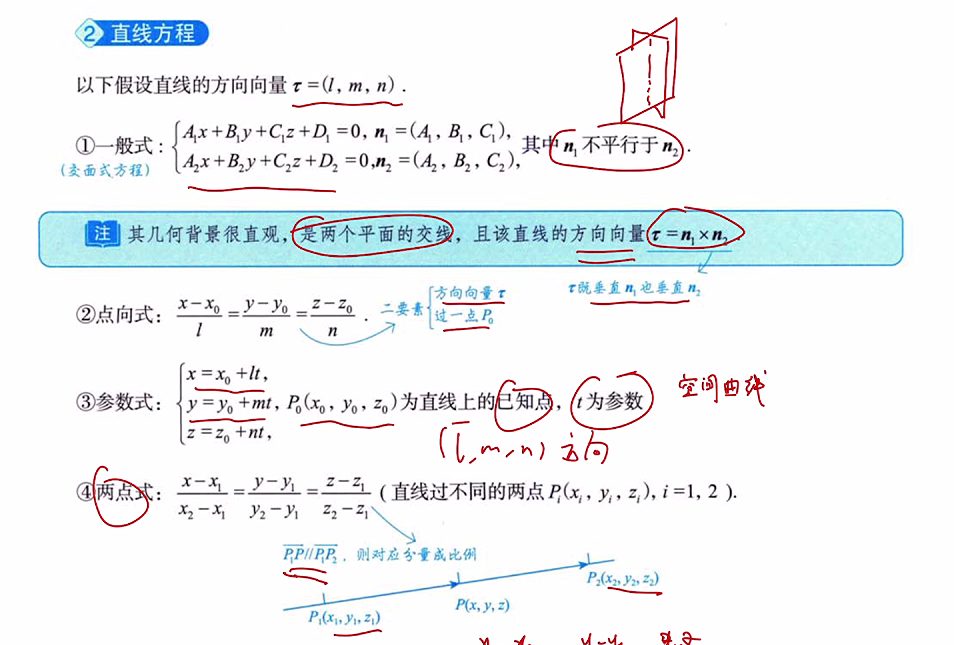 ② 直线方程
以下假设直线的方向向量 τ =(l, m, n) .
①一般式 : { A₁x+B₁y+C₁z+D₁ =0, n₁ =(A₁, B₁, C₁),
A₂x+B₂y+C₂z+D₂ =0, n₂ =(A₂, B₂, C₂), 其中 n₁ 不平行于 n₂ .
(交面式方程)
注 其几何背景很直观, 是两个平面的交线, 且该直线的方向向量 τ = n₁×n₂ .
τ既垂直n₁也垂直n₂
②点向式: (x−x₀)/l = (y−y₀)/m = (z−z₀)/n .
二要素 { 方向向量 τ
过一点 P₀
③参数式: { x = x₀ +lt,
y = y₀ +mt, P₀(x₀, y₀, z₀)为直线上的已知点, t为参数
z = z₀ +nt,
空间曲线
(l, m, n) 方向
④两点式: (x−x₁)/(x₂−x₁) = (y−y₁)/(y₂−y₁) = (z−z₁)/(z₂−z₁) ( 直线过不同的两点 Pᵢ(xᵢ, yᵢ, zᵢ), i =1, 2 ).
P₁P // P₁P₂ , 则对应分量成比例
P₂(x₂, y₂, z₂)
P(x, y, z)
P₁(x₁, y₁, z₁)